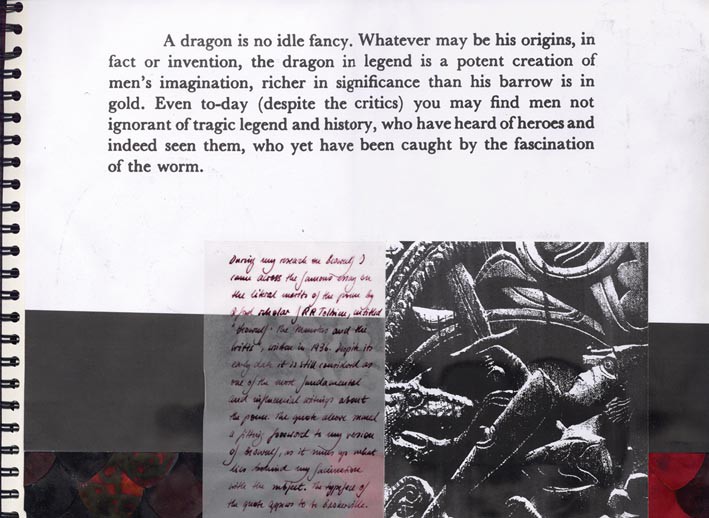 A dragon is no idle fancy. Whatever may be his origins, in
fact or invention, the dragon in legend is a potent creation of
men's imagination, richer in significance than his barrow is in
gold. Even to-day (despite the critics) you may find men not
ignorant of tragic legend and history, who have heard of heroes and
indeed seen them, who yet have been caught by the fascination
of the worm.
During my research on Beowulf I
came across the famous essay on
the literal merits of the poem by
scholar JRR Tolkien, entitled
"Beowulf: The Monsters and the
", written in 1936. its
early date it is still considered as
one of the most fundamental
and influential writings about
the poem. The quote above
a fitting foreword to my version
of Beowulf, as it up what
lies behind my fascination
with the subject. The typeface of
the quote appears to be Baskerville.